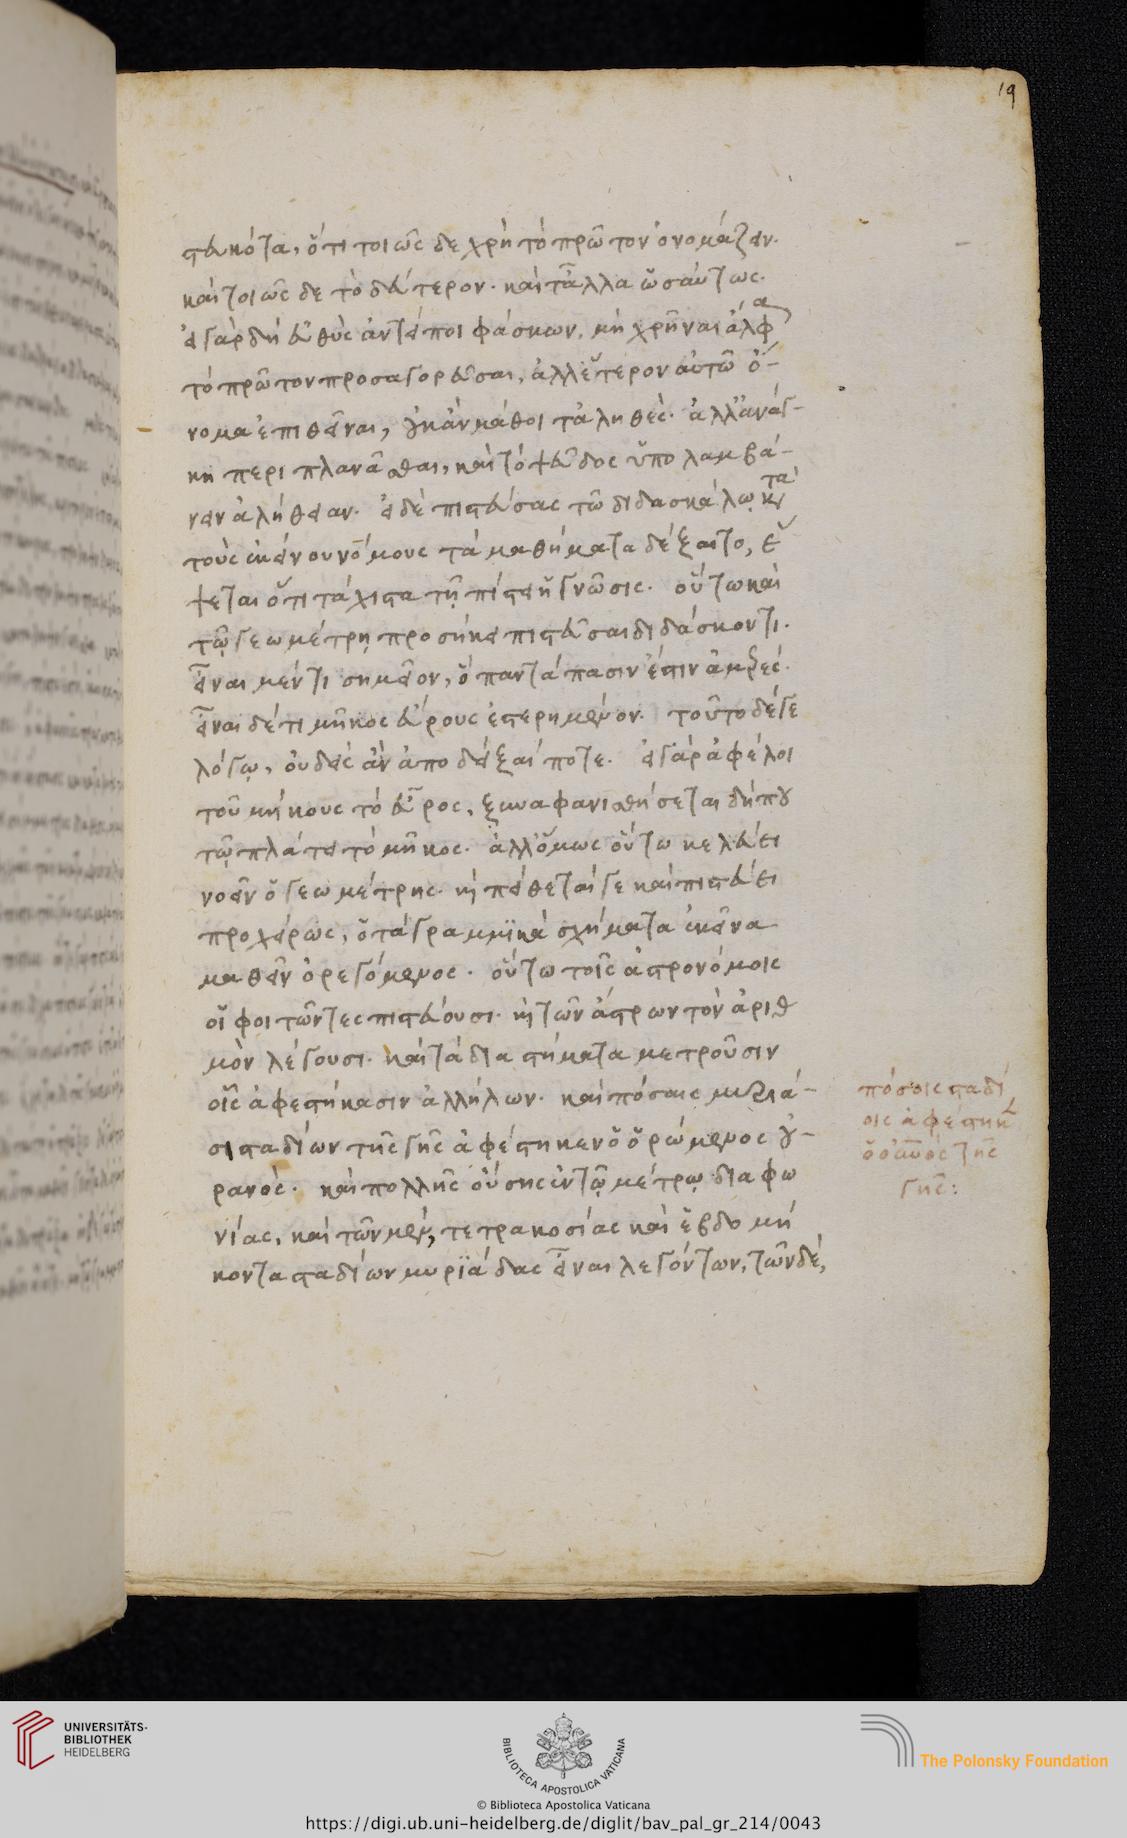 19
στευκότα, ὅτι τοιῶσδε χρὴ τὸ πρῶτον ὀνομάζειν.
καὶ τοιῶσδε τὸ δεύτερον. καὶ τἆλλα ὡσαύτως.
εἰ γὰρ δὴ εὐθὺς ἀντείποι φάσκων, μὴ χρῆναι ἄλφα
τὸ πρῶτον προσαγορεῦσαι, ἀλλ' ἕτερον αὐτῶ ὄ-
νομα ἐπιθεῖναι, οὐκ ἂν μάθοι τἀληθές. ἀλλ' ἀνάγ-
κη περιπλανᾶσθαι, καὶ τὸ ψεῦδος ὑπολαμβά-
νειν ἀλήθειαν. εἰ δὲ πιστεύσας τῶ διδασκάλῳ κατὰ
τοὺς ἐκείνου νόμους τὰ μαθήματα δέξαιτο, ἕ
ψεται ὅτι τάχιστα τῇ πίστει ἡ γνῶσις. οὕτω καὶ
τῷ γεωμέτρῃ προσήκει πιστεῦσαι διδάσκοντι.
εἶναι μέν τι σημεῖον, ὃ παντάπασιν ἐστιν ἀμερές.
εἶναι δέ τι μῆκος εὔρους ἐστερημένον. τοῦτο δέ γε
λόγῳ, οὐδεὶς ἂν ἀποδείξαί ποτε. εἰ γὰρ ἀφέλοι
τοῦ μήκους τὸ εὖρος, ξυναφανισθήσεται δήπου
τῷ πλάτει τὸ μῆκος. ἀλλ' ὅμως οὕτω κελεύει
νοεῖν ὁ γεωμέτρης. καὶ πείθεταί γε καὶ πιστεύει
προχείρως, ὁ τὰ γραμμϊκὰ σχήματα ἐκεῖνα
μαθεῖν ὀρεγόμενος. οὕτω τοῖς ἀστρονόμοις
οἱ φοιτῶντες πιστεύουσι. καὶ τῶν ἄστρων τὸν ἀριθ
μὸν λέγουσι. καὶ τὰ διαστήματα μετροῦσιν
οἷς ἀφεστήκασιν ἀλλήλων. καὶ πόσαις μυριά-
σι σταδίων τῆς γῆς ἀφέστηκεν ὁ ὁρώμενος οὐ-
ρανός. καὶ πολλῆς οὔσης ἐν τῷ μέτρῳ διαφω
νίας, καὶ τῶν μέν, τετρακοσίας καὶ ἑβδομή
κοντα σταδίων μυρϊάδας εἶναι λεγόντων, τῶν δέ,
πόσοις σταδί
οις ἀφέστηκεν
ὁ οὐνος τῆς
γῆς:
UNIVERSITÄTS-
BIBLIOTHEK
HEIDELBERG
BIBLIOTECA APOSTOLICA VATICANA
The Polonsky Foundation
© Biblioteca Apostolica Vaticana
https://digi.ub.uni-heidelberg.de/diglit/bav_pal_gr_214/0043